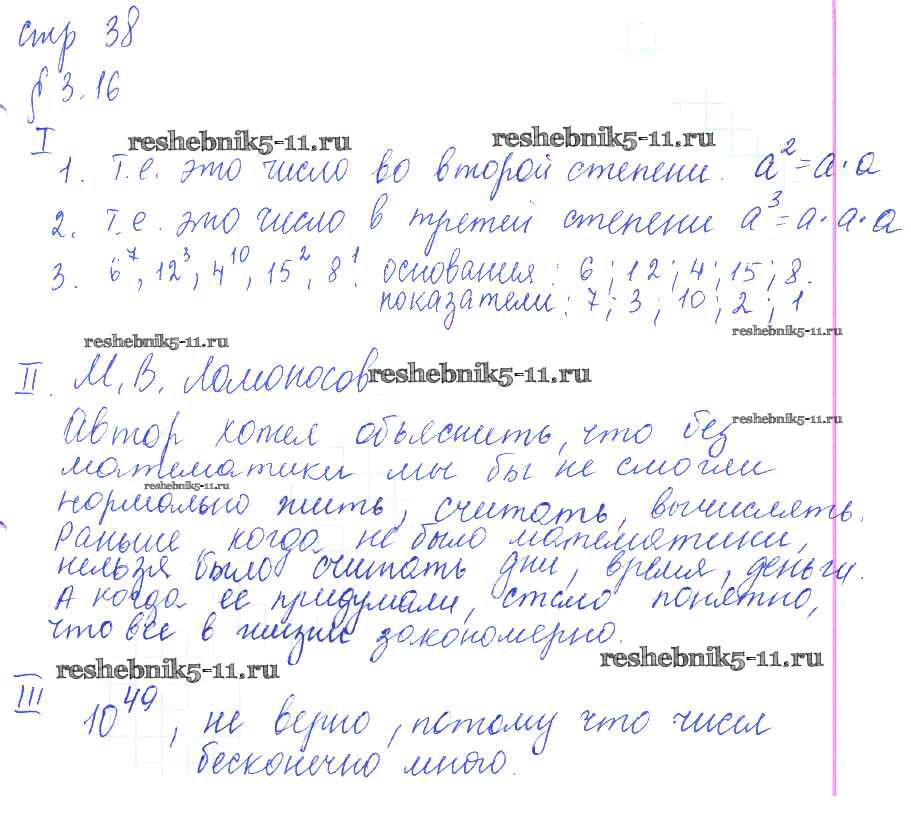 стр 38
§ 3.16
I
reshebnik5-11.ru reshebnik5-11.ru
1. Т.е. это число во второй степени. a² = a · a
2. т.е. это число в третей степени a³ = a · a · a
3. 6⁷, 12³, 4¹⁰, 15², 8¹. основания: 6; 12; 4; 15; 8.
показатели: 7; 3; 10; 2; 1
reshebnik5-11.ru
reshebnik5-11.ru
II. М. В. Ломоносов reshebnik5-11.ru
reshebnik5-11.ru
Автор хотел объяснить, что без
математики мы бы не смогли
reshebnik5-11.ru
нормально жить, считать, вычислять.
Раньше, когда не было математики,
нельзя было считать дни, время, деньги.
А когда ее придумали, стало понятно,
что все в жизни закономерно.
reshebnik5-11.ru reshebnik5-11.ru
III 10⁴⁹, не верно, потому что чисел
бесконечно много.